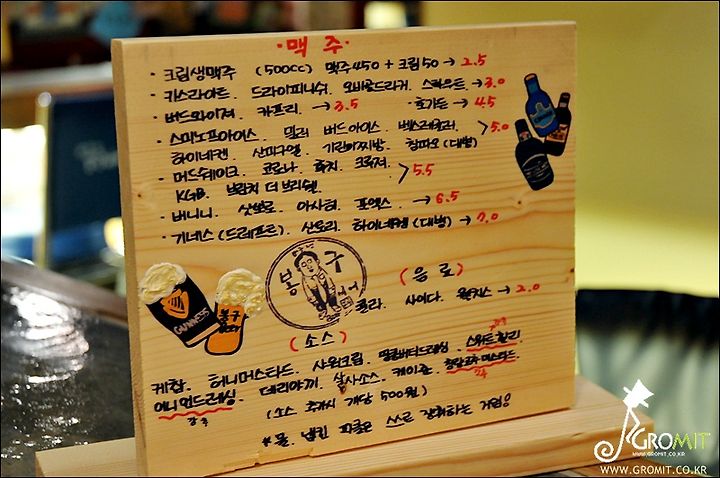 ·맥 주·
· 크림생맥주 (500cc) 맥주450 + 크림50 → 2.5
· 카스라이트. 드라이피니쉬. 오비골드라거. 스타우트 → 3.0
· 버드와이져. 카프리. → 3.5 · 호가든 → 4.5
· 스미노프아이스. 밀러 버드아이스. 벡스레몬라거. > 5.0
하이네켄. 산미구엘. 기린이찌방. 칭따오 (대병)
· 머드쉐이크. 코로나. 후치. 크루져. > 5.5
KGB. 브랑쳐 더 브리첼
· 버니니. 삿뽀로. 아사히. 포엑스. → 6.5
· 기네스 (드래프트). 산토리. 하이네켄 (대병) → 7.0
봉구
비어
GUINNESS
봉구
Beer
(음료)
콜라. 사이다. 웰치스 → 2.0
(소스)
케찹. 허니머스타드. 사워크림. 땅콩버터드레싱. 스위트칠리
어니언드레싱. 데리야끼. 살사소스. 케이준. 청양고추머스타드
강추
(소스 추가시 개당 500원)
* 물. 냅킨 피클은 스스로 갖춰하는 거임
GROMIT
WWW.GROMIT.CO.KR
WWW.GROMIT.CO.KR